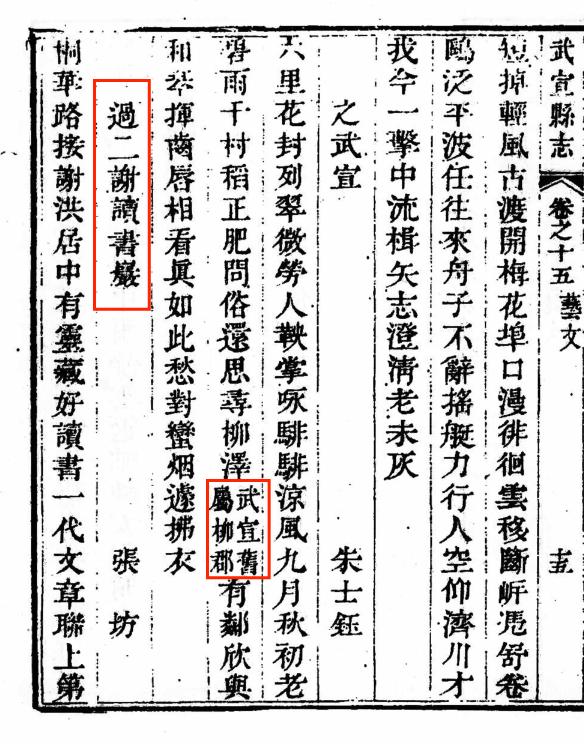 武宣縣志 卷之十五 藝文
短掉輕風古渡開梅花埠口漫徘徊雲移斷岍凴舒卷
鷗泛平波任往來舟子不辭搖艇力行人空仰濟川才
我今一擊中流楫矢志澄清老未灰
之武宣 朱士鈺
六里花封列翠微勞人鞅掌咏騑騑涼風九月秋初老
碧雨千村稻正肥問俗還思尋柳澤武宣舊屬柳郡有鄰欣與
和琴揮齒唇相看眞如此愁對蠻烟遽拂衣
過二謝讀書巖 張坊
桐華路接謝洪居中有靈藏好讀書一代文章聯上第